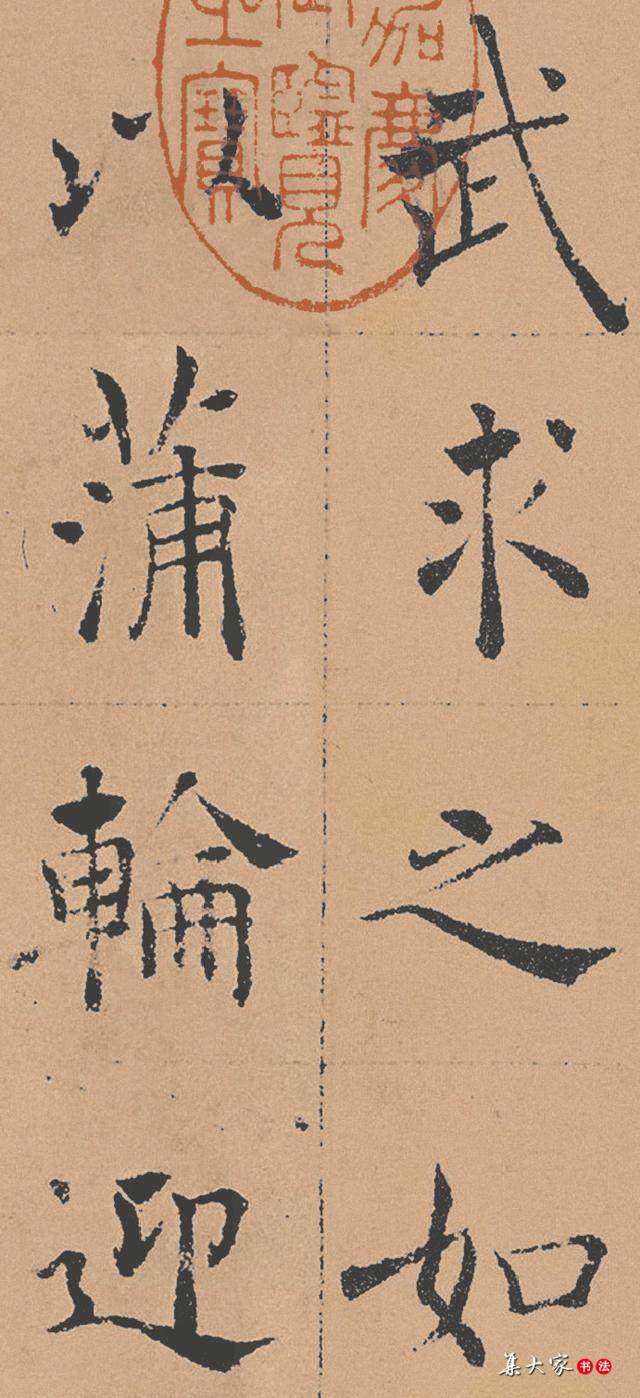 武求之如
以蒲輪迎
嘉慶
御覽之寶
集大家书法